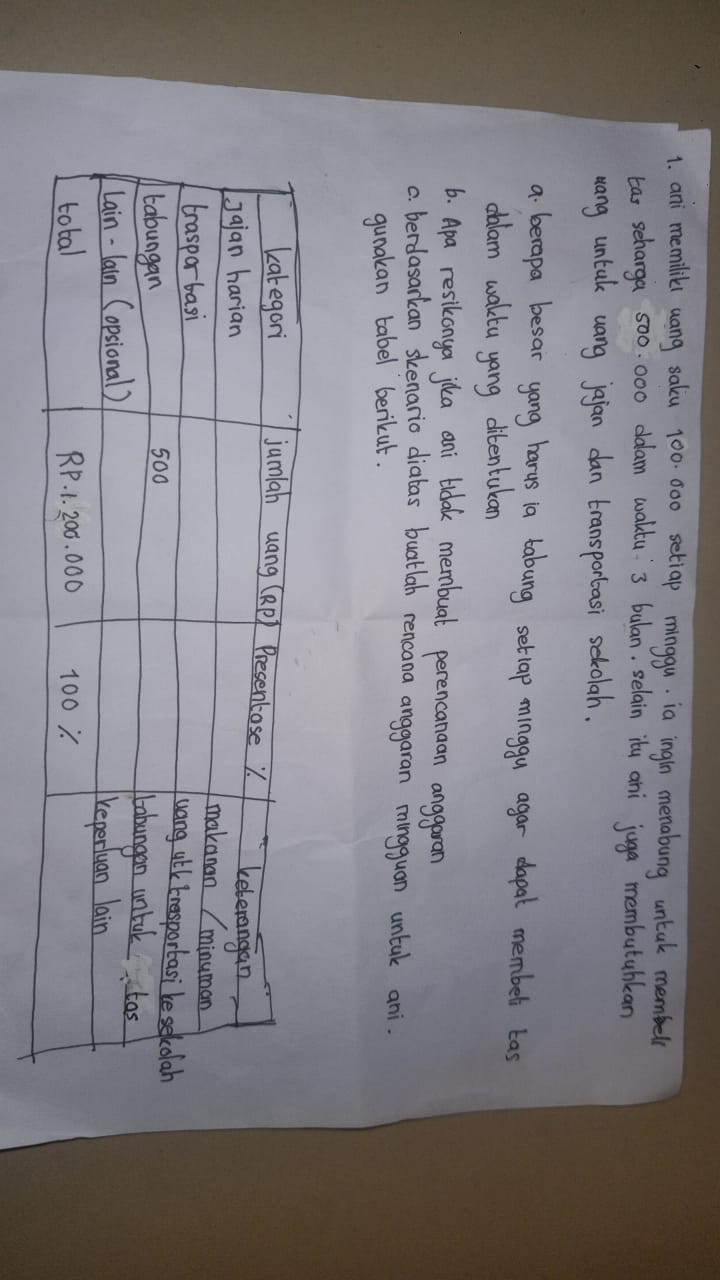 1. ani memiliki uang saku 100.000 setiap minggu. ia ingin menabung untuk membeli
tas seharga 500.000 dalam waktu 3 bulan. selain itu ani juga membutuhkan
uang untuk uang jajan dan transportasi sekolah.
a. berapa besar yang harus ia tabung setiap minggu agar dapat membeli tas
dalam waktu yang ditentukan
b. Apa resikonya jika ani tidak membuat perencanaan anggaran
c. berdasarkan skenario diatas buatlah rencana anggaran mingguan untuk ani.
gunakan tabel berikut.
kategori jumlah uang (RP) Presentase % keterangan
Jajan harian makanan / minuman
trasportasi uang utk trasportasi ke sekolah
tabungan 500 tabungan untuk tas
lain - lain (opsional) keperluan lain
total RP. 1.200.000 100 %